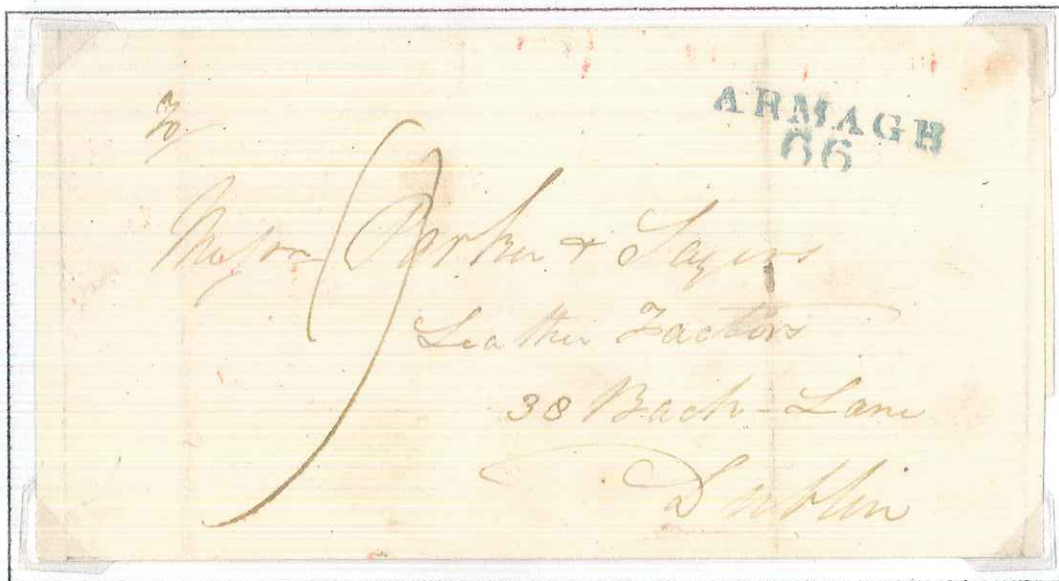 ARMAGH
66
To
Messrs Parker & Sayers
Leather Factors
38 Back-Lane
Dublin
9